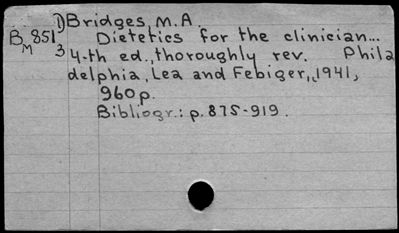 1) Bridges, M.A.
B 851 Dietetics for the clinician...
M 3 4-th ed., thoroughly rev. Phila
delphia, Lea and Febiger, 1941,
960p.
Bibliogr.: p. 875-919.